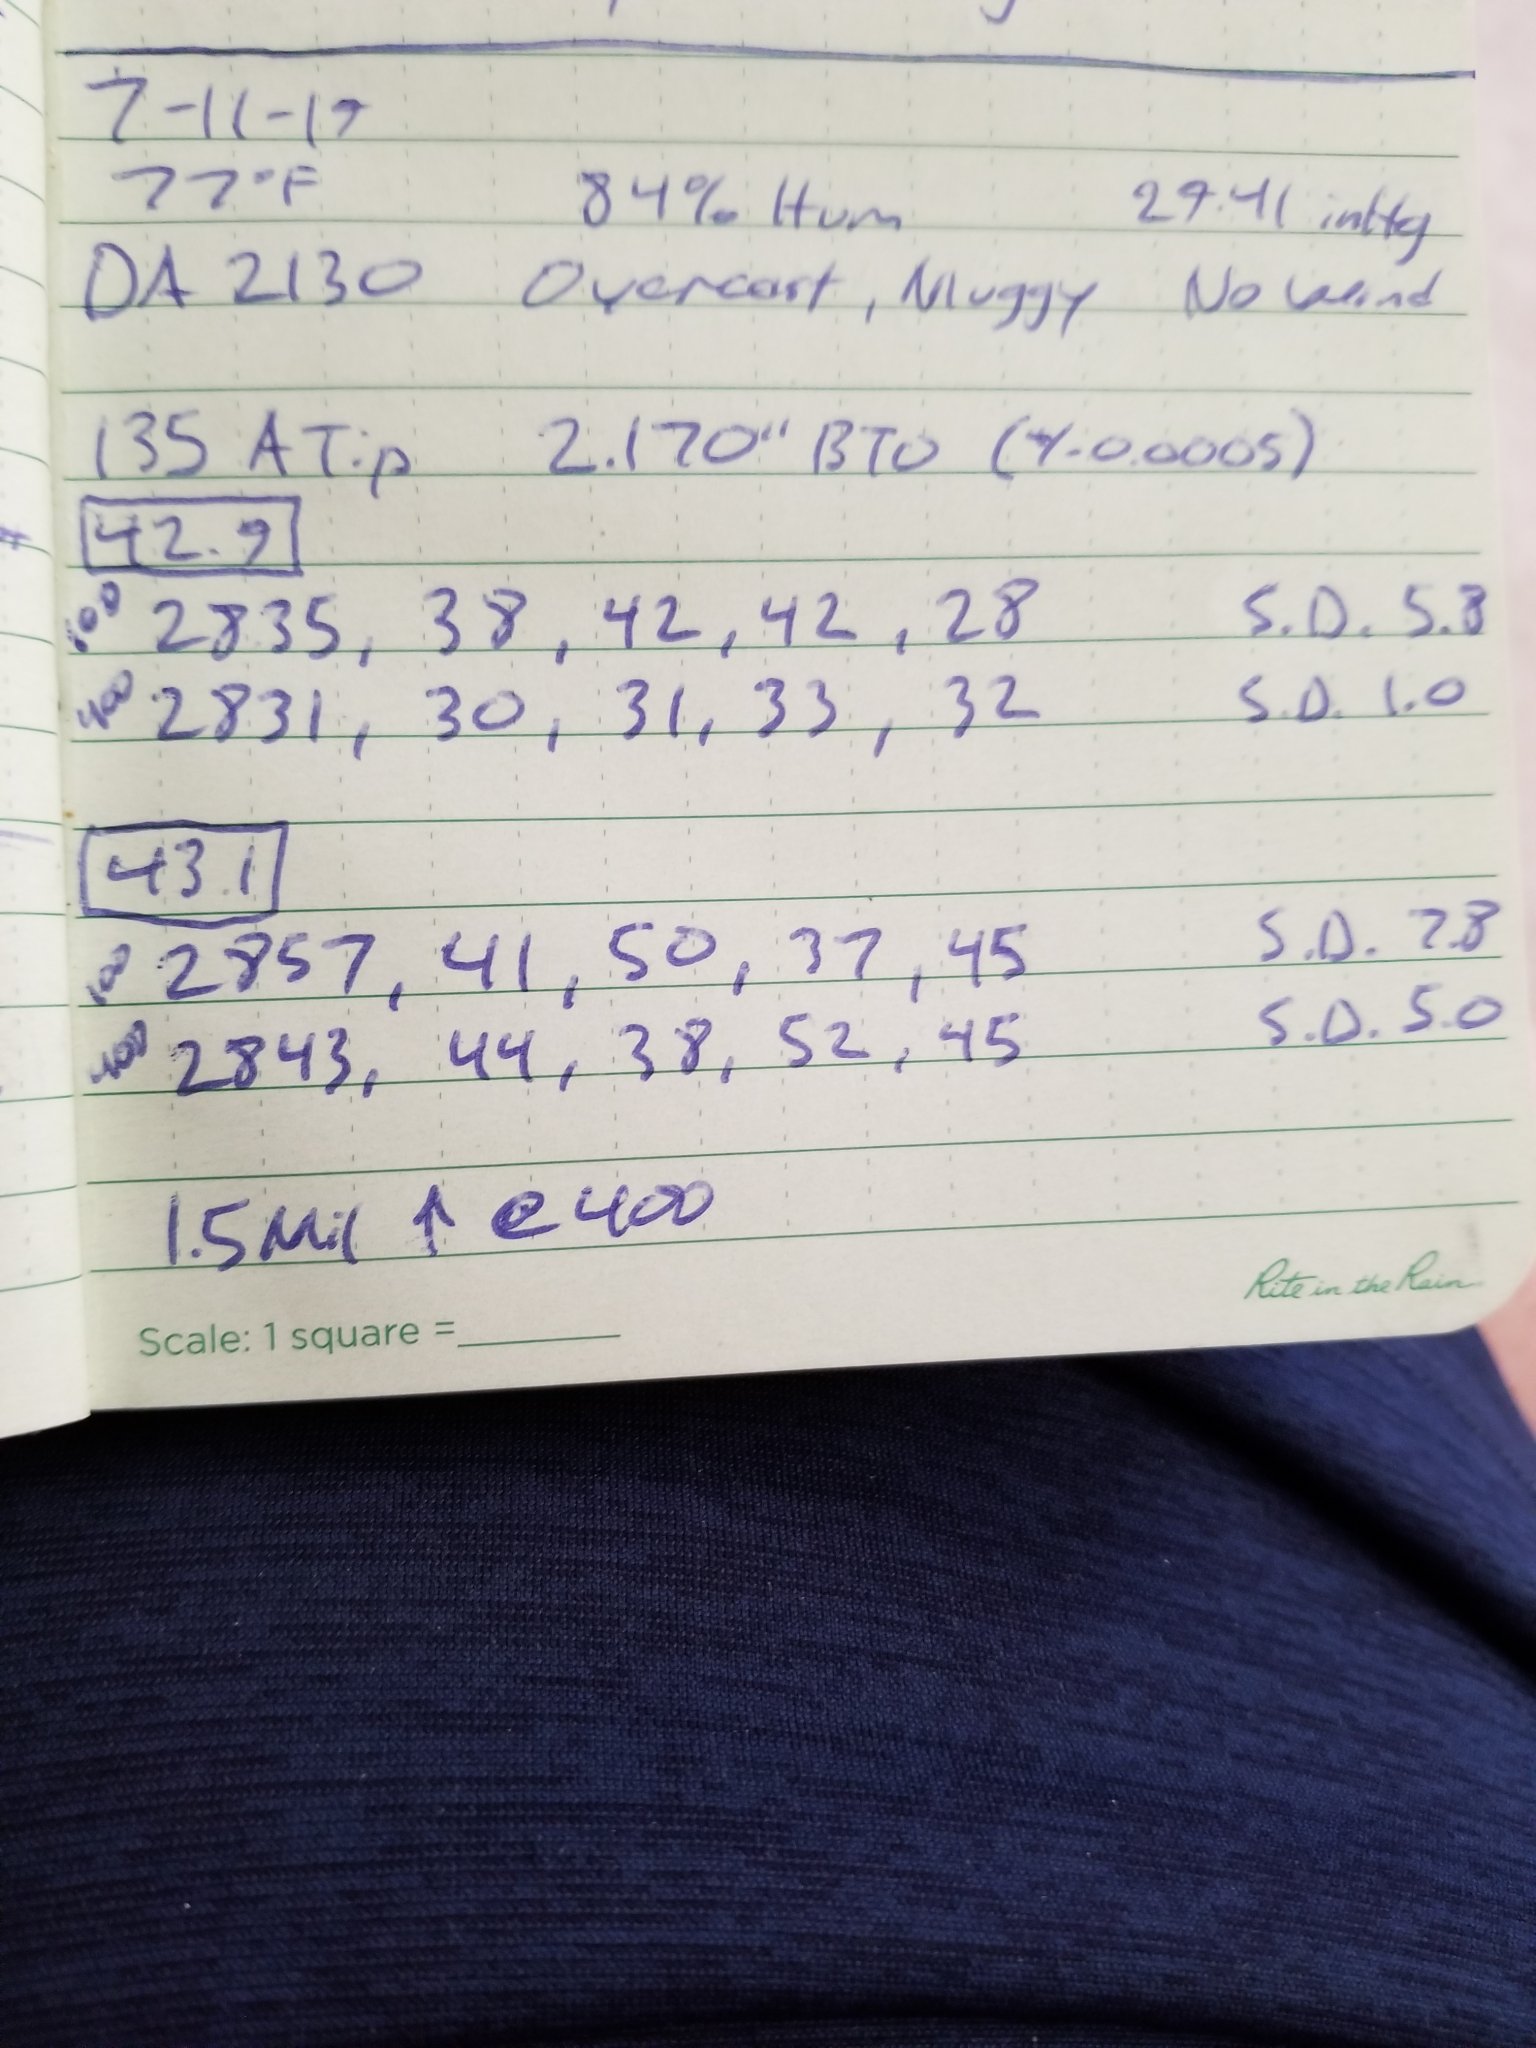 7-11-19
77°F 84% Hum 29.41 inHg
DA 2130 Overcast, Muggy No Wind
135 A Tip 2.170" BTO (+/-0.0005)
42.9
100 2835, 38, 42, 42, 28 S.D. 5.8
400 2831, 30, 31, 33, 32 S.D. 1.0
43.1
100 2857, 41, 50, 37, 45 S.D. 7.8
400 2843, 44, 38, 52, 45 S.D. 5.0
1.5 Mil ↑ @ 400
Rite in the Rain
Scale: 1 square =